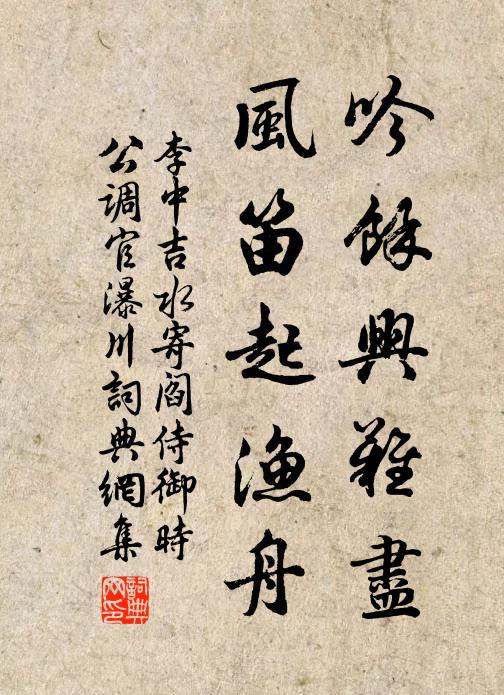 吟餘興難盡
風笛起漁舟
李中吉水寄閻侍御時
公調官瀑川詞典網集
詞典网印